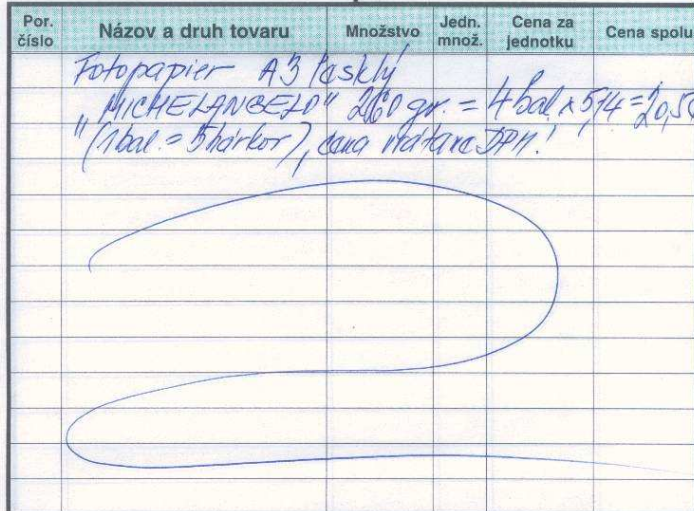 Por. číslo Názov a druh tovaru Množstvo Jedn. množ. Cena za jednotku Cena spolu
Fotopapier A3 lesklý
"MICHELANGELO" 260 gr. = 4 bal. x 5,14 = 20,56
(1 bal = 5 hárkov), cena vrátane DPH!